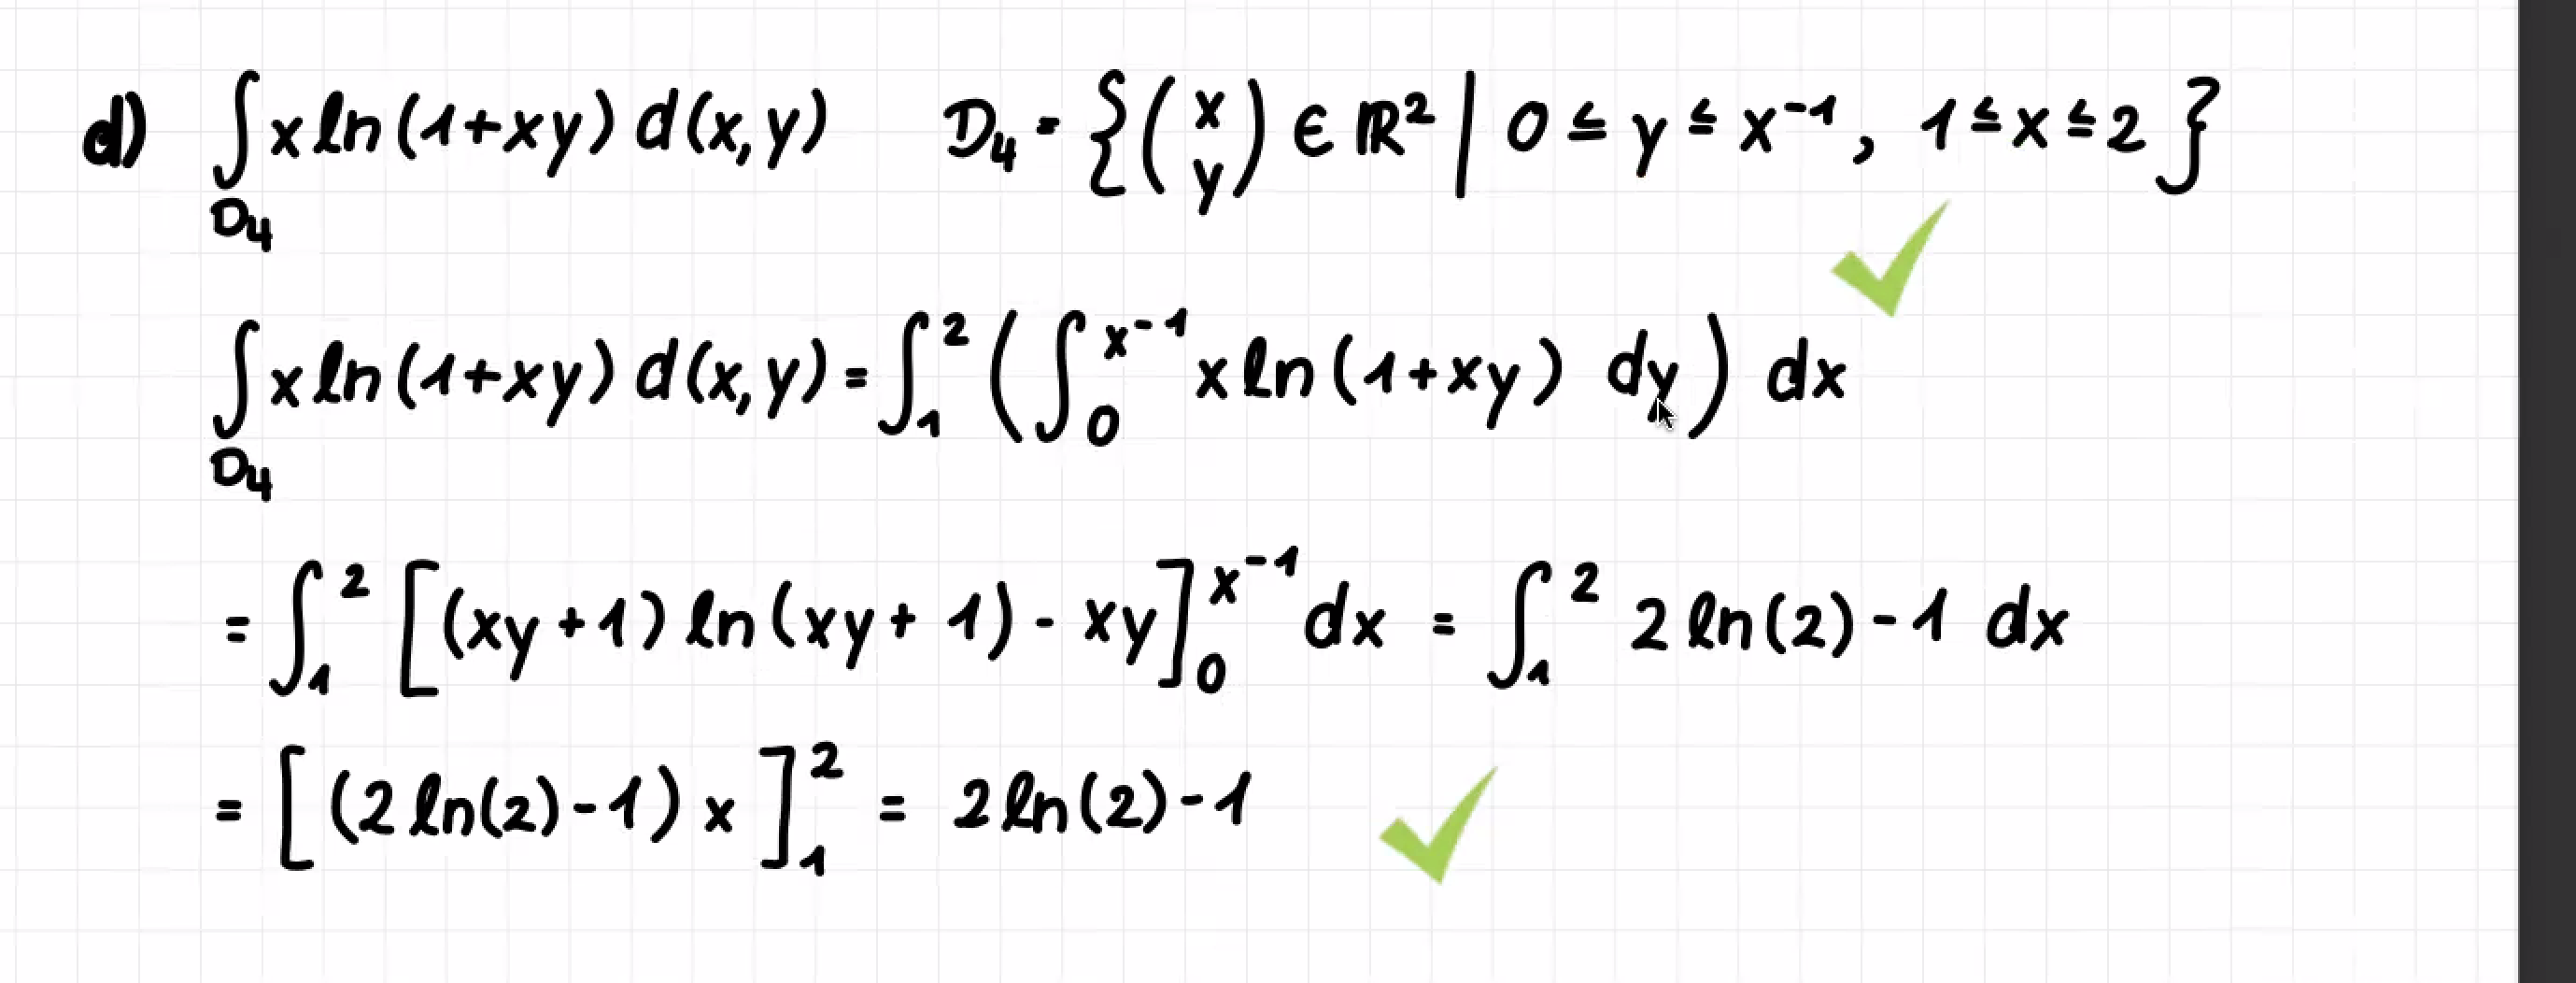 d) ∫_{D₄} x ln(1+xy) d(x,y)   D₄ = {(x y) ∈ ℝ² | 0 ≤ y ≤ x⁻¹, 1 ≤ x ≤ 2}
∫_{D₄} x ln(1+xy) d(x,y) = ∫₁² (∫₀^{x⁻¹} x ln(1+xy) dy) dx
= ∫₁² [(xy+1) ln(xy+1) - xy]₀^{x⁻¹} dx = ∫₁² 2 ln(2) - 1 dx
= [(2 ln(2) - 1) x]₁² = 2 ln(2) - 1